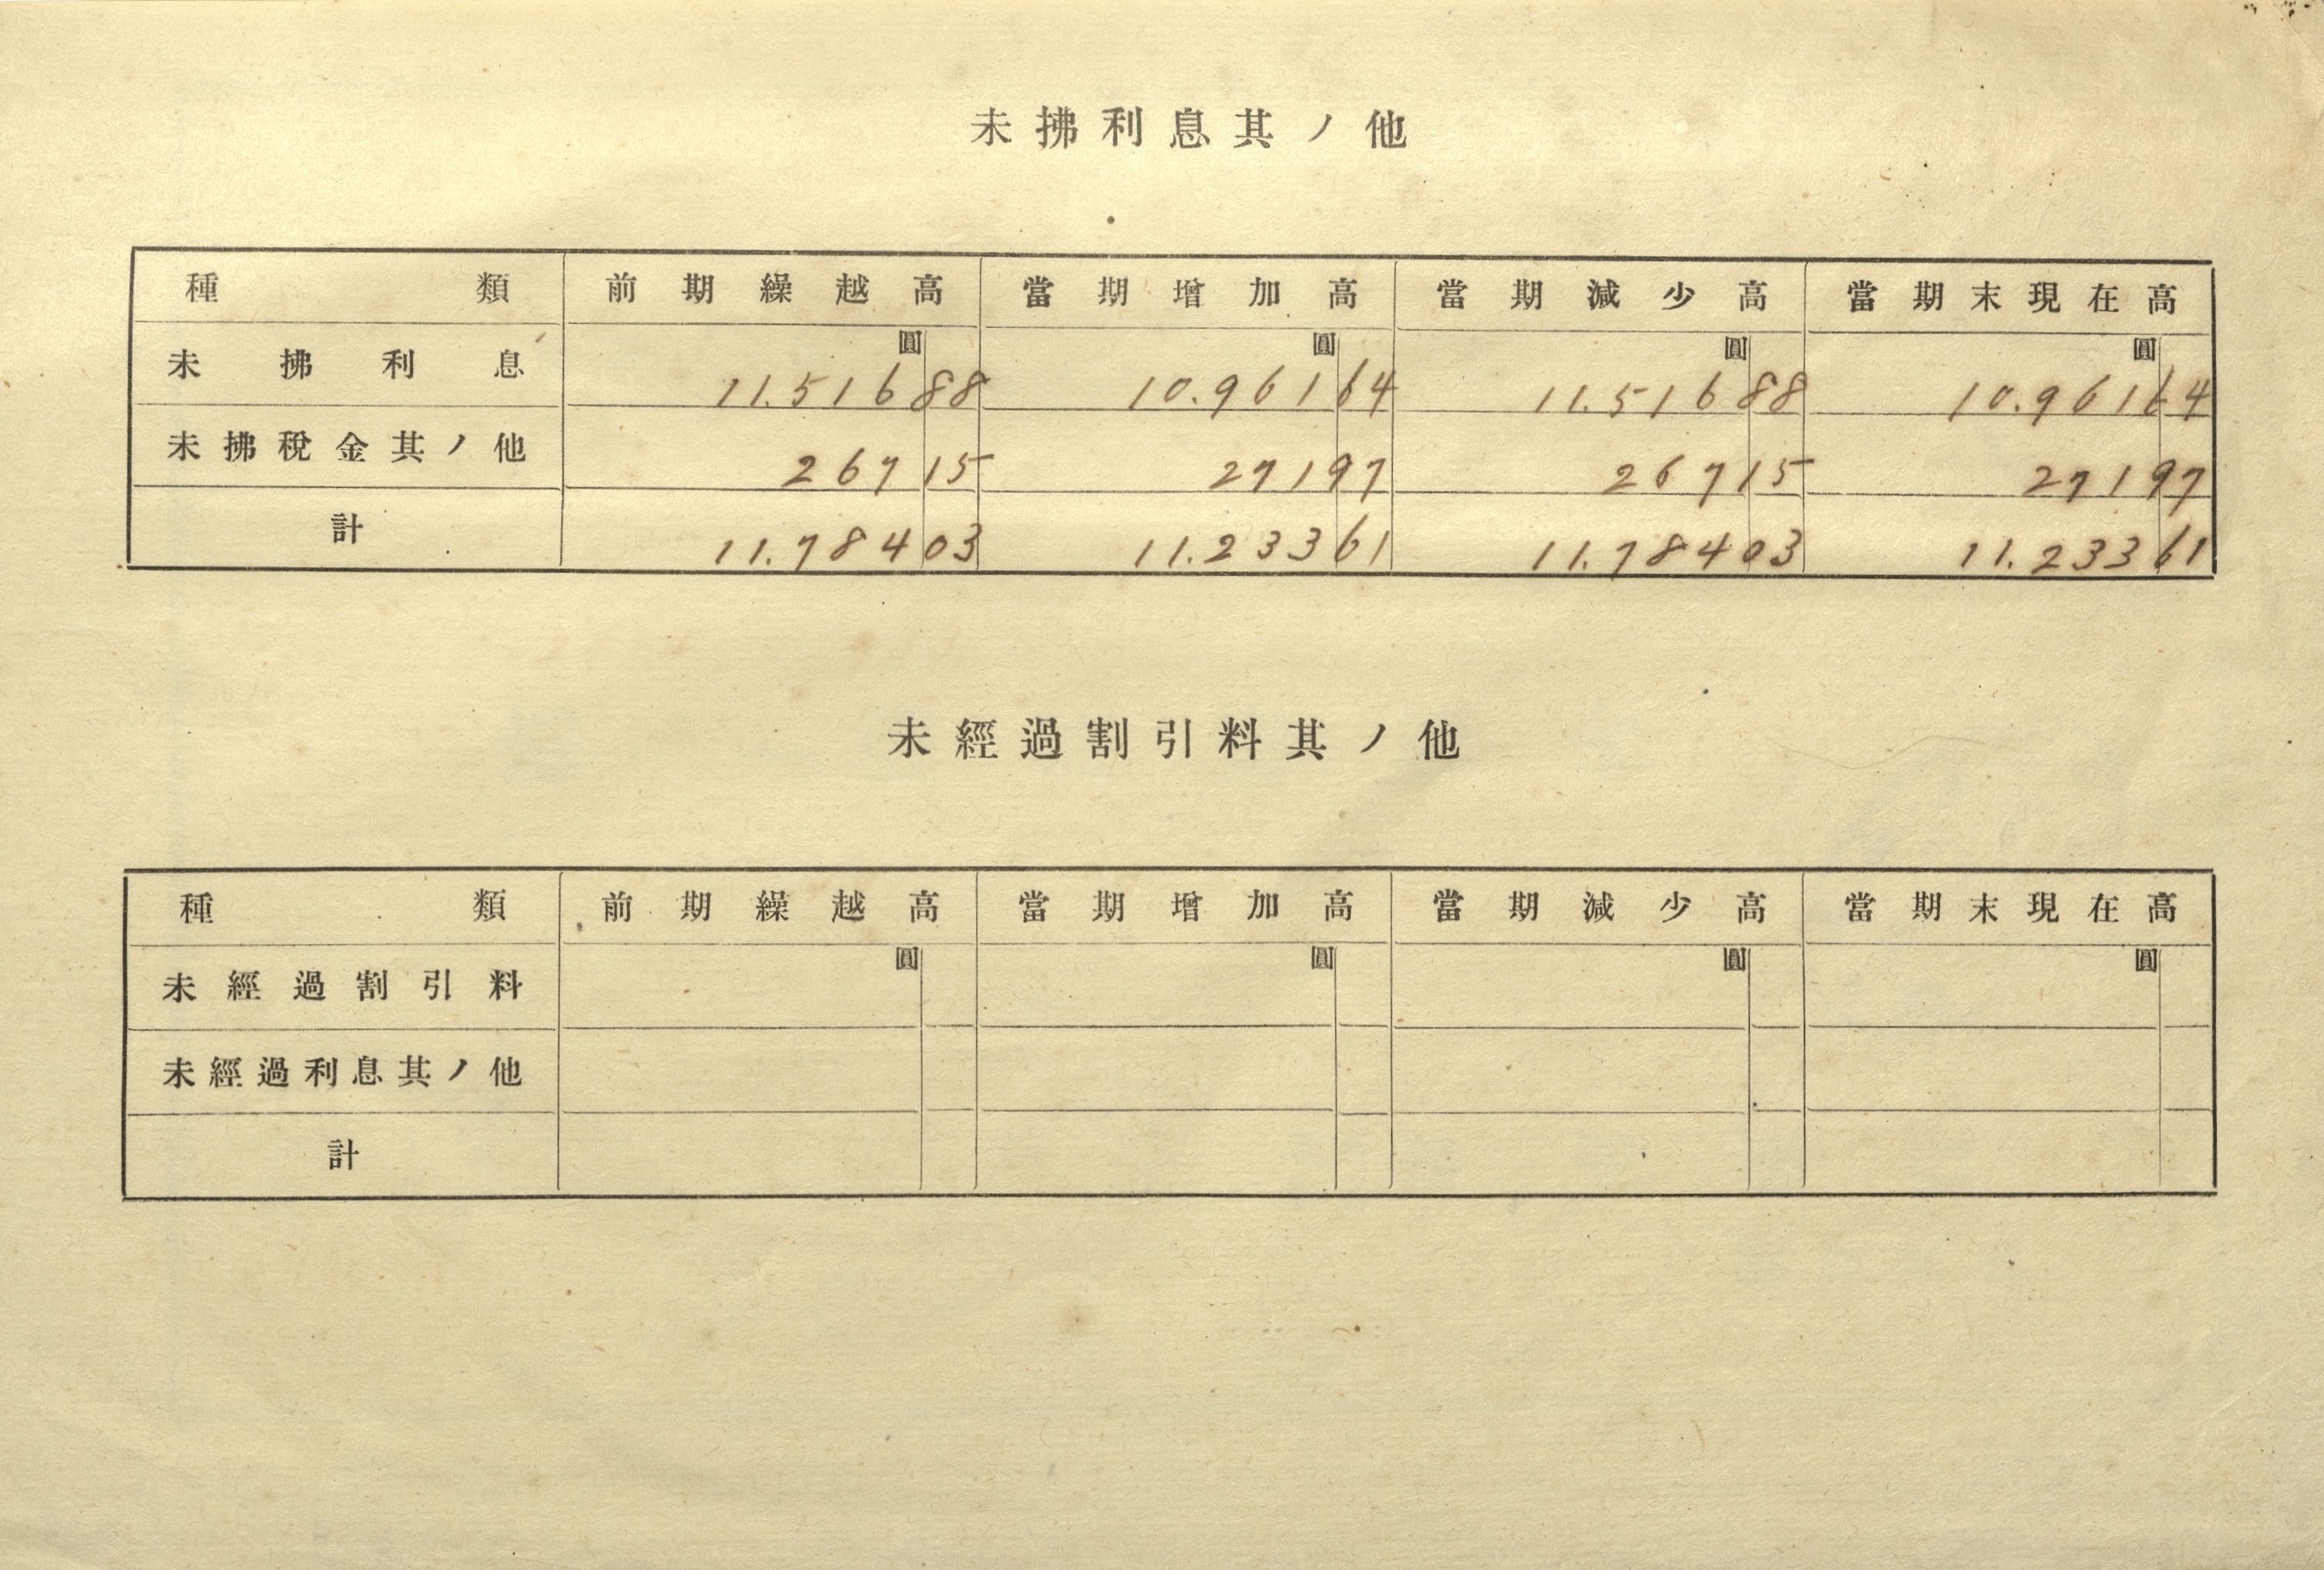 未拂利息其ノ他
種類 前期繰越高 當期增加高 當期減少高 當期末現在高
圓 圓 圓 圓
未拂利息 11.516 88 10.961 64 11.516 88 10.961 64
未拂稅金其ノ他 267 15 271 97 267 15 271 97
計 11.784 03 11.233 61 11.784 03 11.233 61
未經過割引料其ノ他
種類 前期繰越高 當期增加高 當期減少高 當期末現在高
圓 圓 圓 圓
未經過割引料
未經過利息其ノ他
計